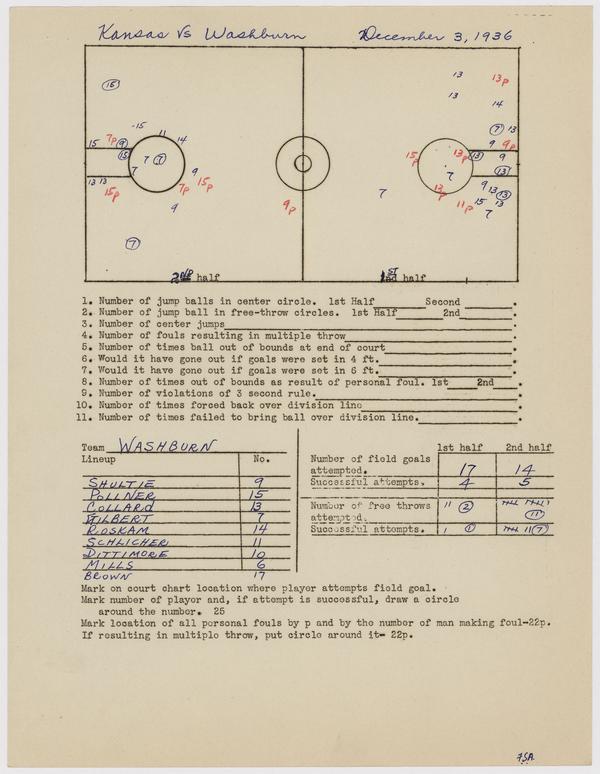 Kansas Vs Washburn December 3, 1936
13 13p
15 13
14
-15 11 7 13
15 7p 9 14 9 9p
15 7 7 15p 13p 13 9
7 9 13
13 13 15p 7p 15p 7 13p 9 13 13
9 9p 7 11p 15 13
7
7
2ND half 1ST half
1. Number of jump balls in center circle. 1st Half Second .
2. Number of jump ball in free-throw circles. 1st Half 2nd .
3. Number of center jumps .
4. Number of fouls resulting in multiple throw .
5. Number of times ball out of bounds at end of court .
6. Would it have gone out if goals were set in 4 ft. .
7. Would it have gone out if goals were set in 6 ft. .
8. Number of times out of bounds as result of personal foul. 1st 2nd .
9. Number of violations of 3 second rule. .
10. Number of times forced back over division line .
11. Number of times failed to bring ball over division line. .
Team WASHBURN 1st half 2nd half
Lineup No. Number of field goals
attempted. 17 14
SHULTIE 9 Successful attempts. 4 5
POLLNER 15
COLLARD 13 Number of free throws 11 2
GILBERT 7 attempted. 11
ROSKAM 14 Successful attempts. 1 1 11 7
SCHLICHER 11
DITTIMORE 10
MILLS 6
BROWN 17
Mark on court chart location where player attempts field goal.
Mark number of player and, if attempt is successful, draw a circle
around the number. 25
Mark location of all personal fouls by p and by the number of man making foul-22p.
If resulting in multiple throw, put circle around it- 22p.